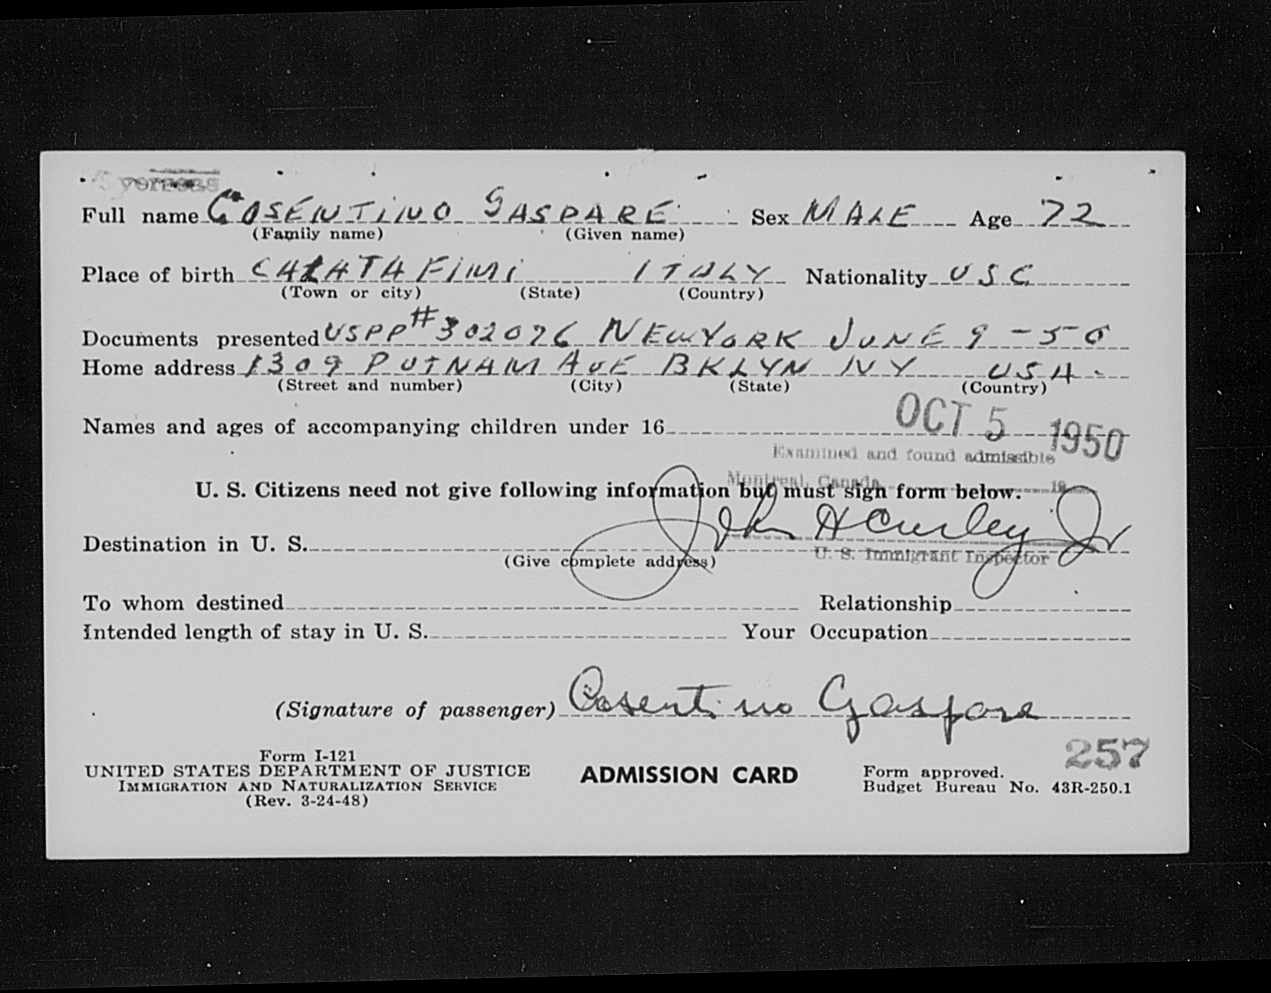 Full name COSENTINO GASPARE Sex MALE Age 72
(Family name) (Given name)
Place of birth CALATAFIMI ITALY Nationality USC
(Town or city) (State) (Country)
Documents presented USPP #302076 NEW YORK JUNE 9-50
Home address 1309 PUTNAM AVE BKLYN NY USA.
(Street and number) (City) (State) (Country)
OCT 5 1950
Names and ages of accompanying children under 16
Examined and found admissible
Montreal, Canada 19
U. S. Citizens need not give following information but must sign form below.
John H Curley Jr
Destination in U. S.
U. S. Immigrant Inspector
(Give complete address)
To whom destined Relationship
Intended length of stay in U. S. Your Occupation
(Signature of passenger) Cosentino Gaspare
257
Form I-121
UNITED STATES DEPARTMENT OF JUSTICE ADMISSION CARD Form approved.
IMMIGRATION AND NATURALIZATION SERVICE Budget Bureau No. 43R-250.1
(Rev. 3-24-48)